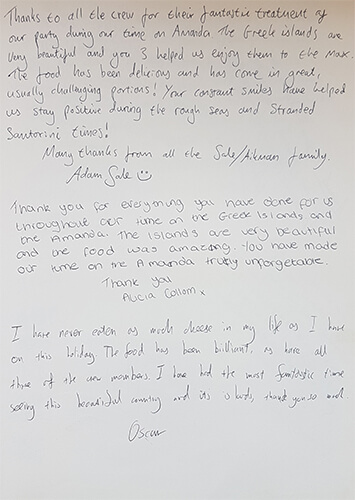 Thanks to all the crew for their fantastic treatment of
our party during our time on Amanda The Greek islands are
very beautiful and you 3 helped us enjoy them to the max.
The food has been delicious and has come in great,
usually challenging portions! Your constant smiles have helped
us stay positive during the rough seas and Stranded
Santorini times!
Many thanks from all the Sale/Aikman family.
Adam Sale
Thank you for everything you have done for us
throughout our time on the Greek Islands and
the Amanda. The islands are very beautiful
and the food was amazing. You have made
our time on the Amanda truly unforgetable.
Thank you
Alicia Collom x
I have never eaten as much cheese in my life as I have
on this holiday. The food has been brilliant, as have all
three of the crew members. I have had the most fantastic time
seeing this beautiful country and its islands, thank you so much.
Oscar